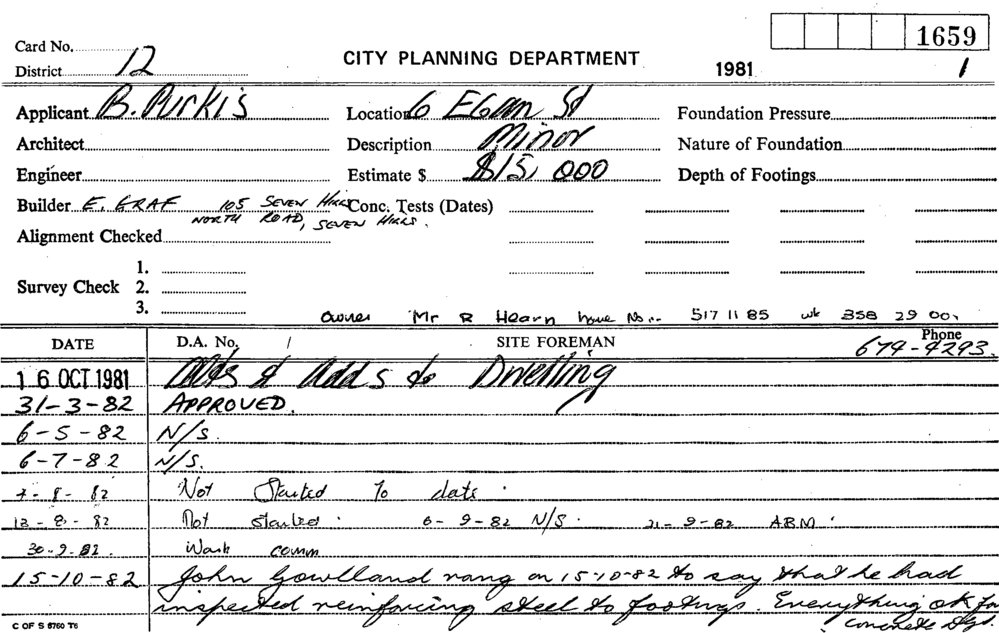 1659
Card No.
District 12
CITY PLANNING DEPARTMENT
1981 1
Applicant B. Purkis Location 6 Egan St Foundation Pressure
Architect Description Minor Nature of Foundation
Engineer Estimate $ $15,000 Depth of Footings
Builder E. GRAF 105 SEVEN HILLS Conc. Tests (Dates)
NORTH ROAD, SEVEN HILLS.
Alignment Checked
1.
Survey Check 2.
3.
Owner Mr R Hearn home No.. 517 11 85 wk 358 29 00.
DATE D.A. No. / SITE FOREMAN Phone
674-4293.
16 OCT 1981 Alts & Adds to Dwelling
31-3-82 APPROVED.
6-5-82 N/S.
6-7-82 N/S.
8-82 Not Started To date.
13-8-82 Not started. 6-9-82 N/S. 21-9-82 ABM.
30-9-82. Work comm
15-10-82 John Gowlland rang on 15-10-82 to say that he had
inspected reinforcing steel to footings. Everything ok for
concrete
C OF S 8760 T6